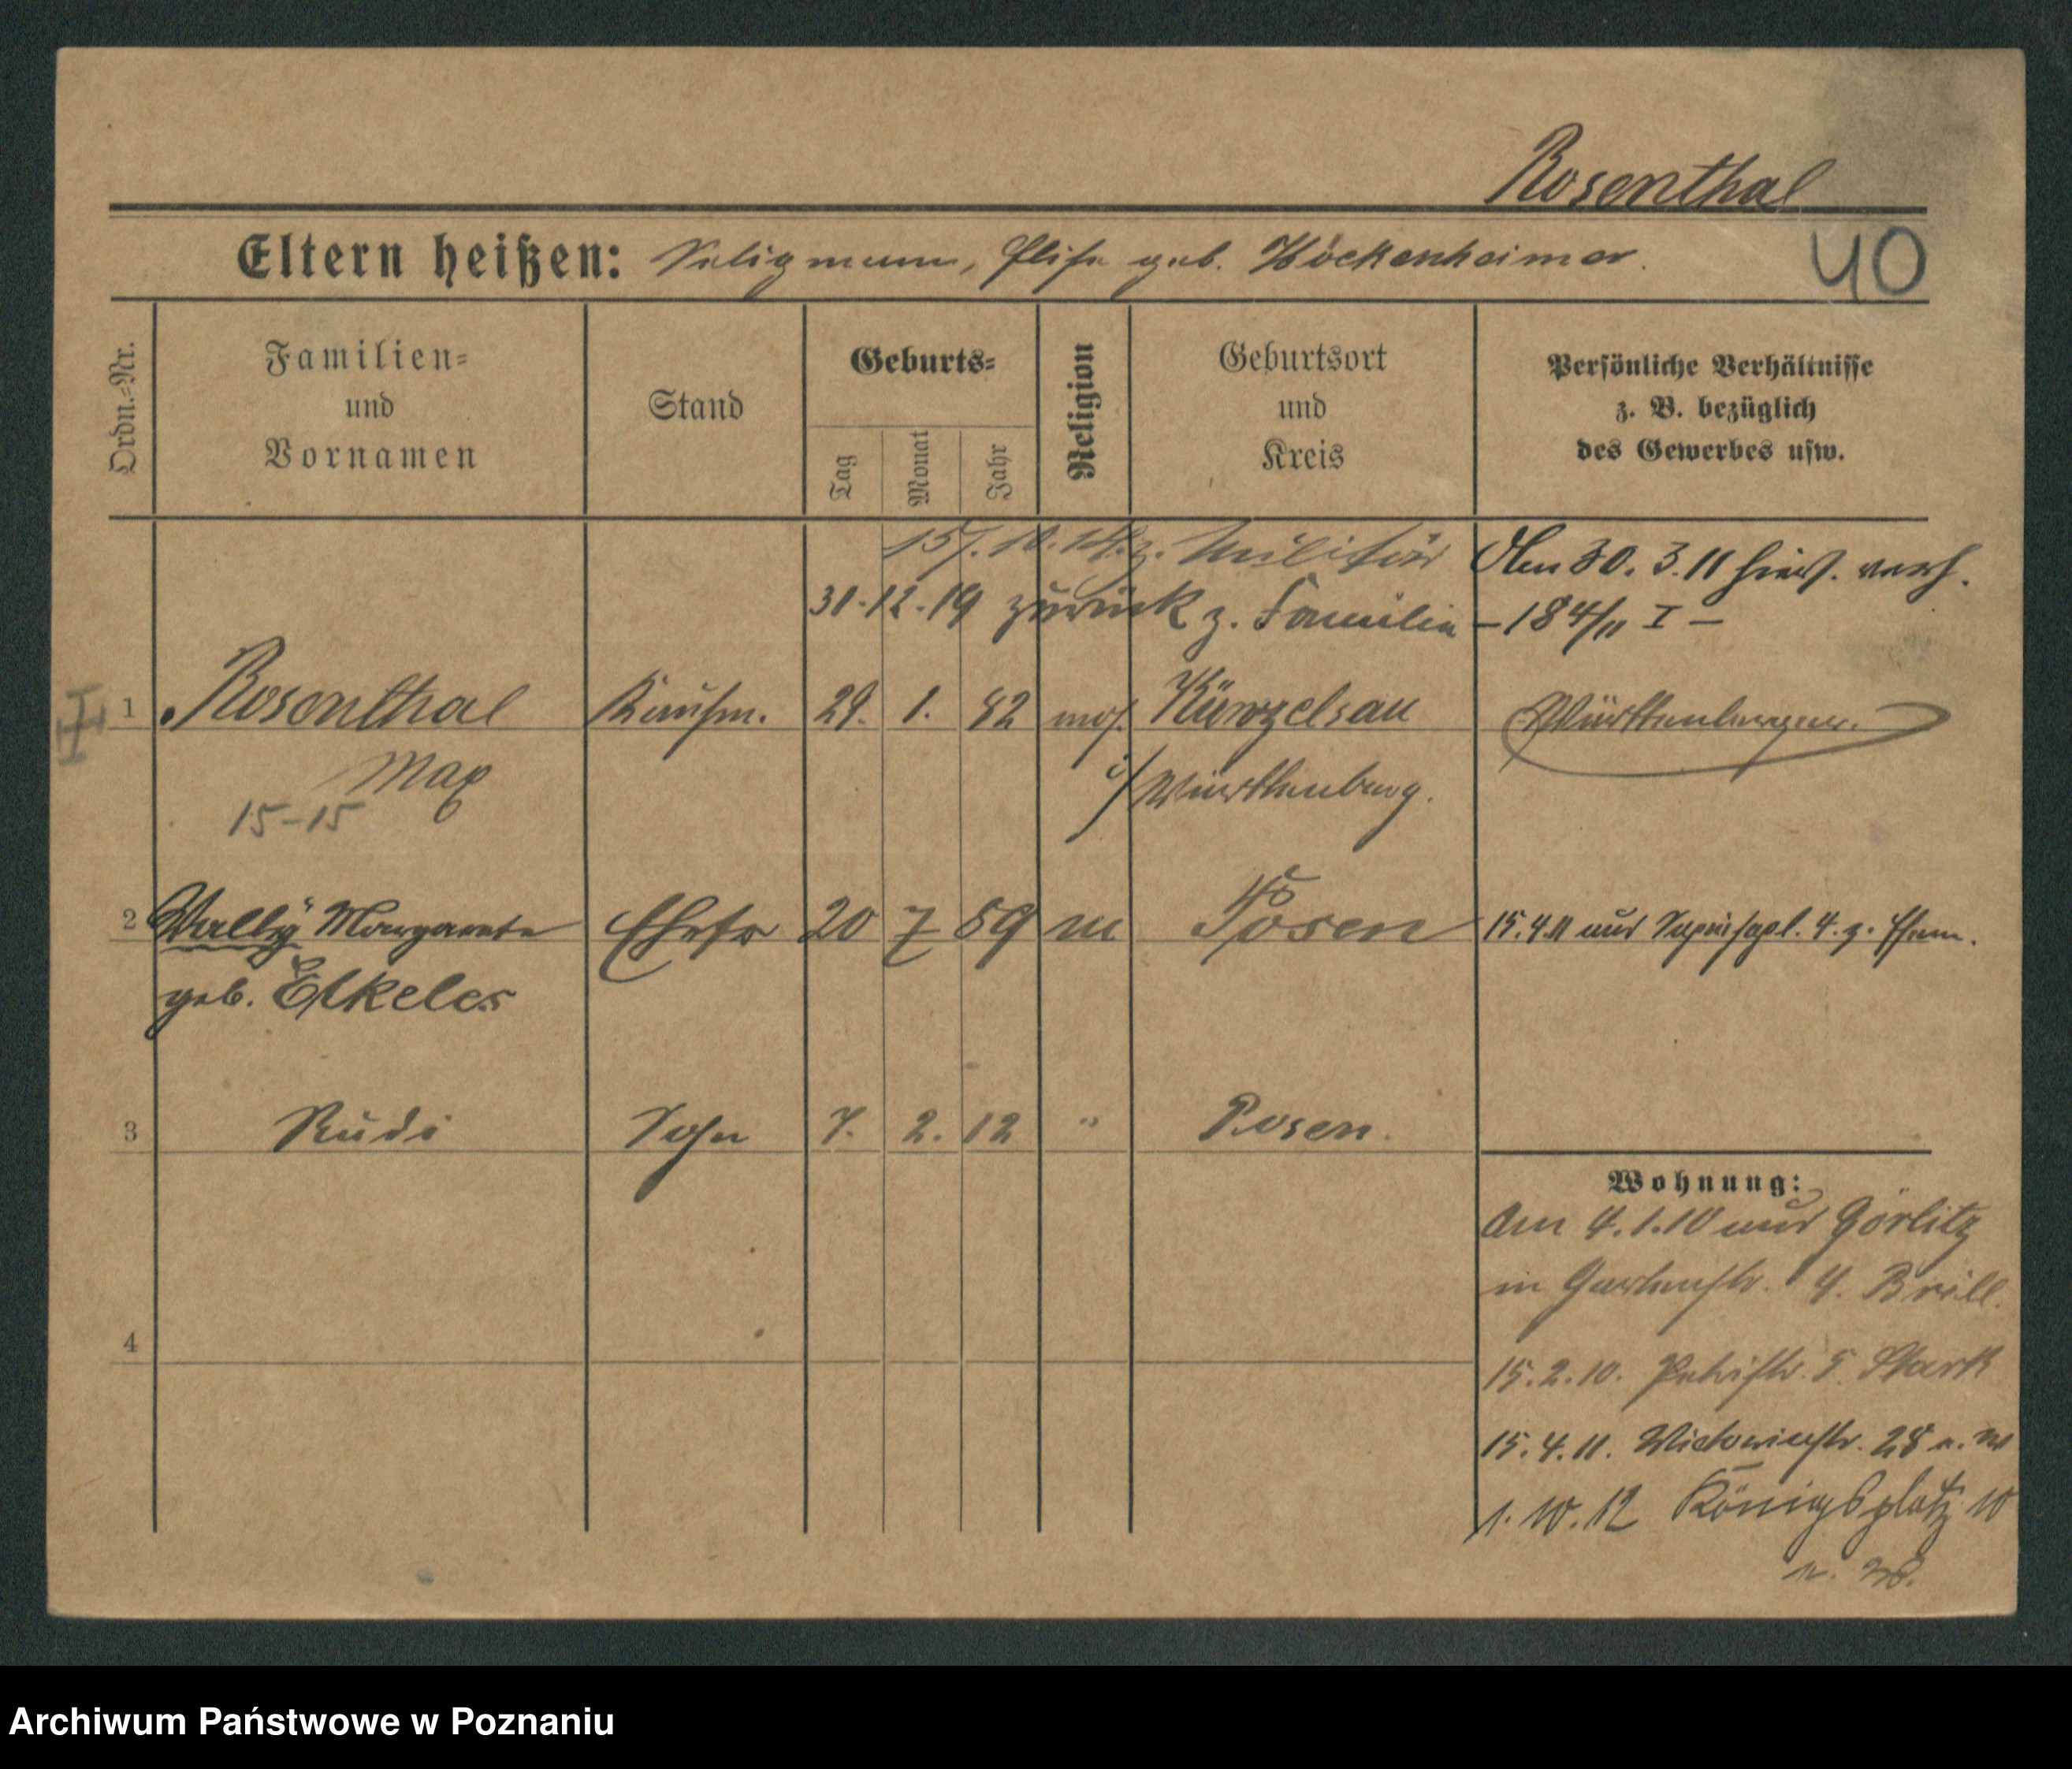 Rosenthal
Eltern heißen: Seligmann, Elise geb. Höckenheimer.
40
Ordn.=Nr.
Familien=
und
Vornamen
Stand
Geburts=
Tag
Monat
Jahr
Religion
Geburtsort
und
Kreis
Persönliche Verhältnisse
z. B. bezüglich
des Gewerbes usw.
15/. 10. 14. z. Militär
31.12.19 zurück z. Familie
Am 30. 3. 11 hier. verh.
– 184/11 I –
1 Rosenthal Kaufm. 29. 1. 82 mos. Künzelsau Württemberger.
Max i/ Württemberg.
15-15
2 Wally Margarete Ehefr 20 7 89 m Posen 15.4.11 aus 4. z. Ehem.
geb. Elkeles
3 Rudi Sohn 7. 2. 12 " Posen.
4
Wohnung:
Am 4.1.10 aus Görlitz
in Gartenstr. 4. Brill.
15.2.10. Petristr. 5. Stark
15.4.11. Victoriastr. 28 n. W
1. 10. 12 Königsplatz 10
n. W.
Archiwum Państwowe w Poznaniu